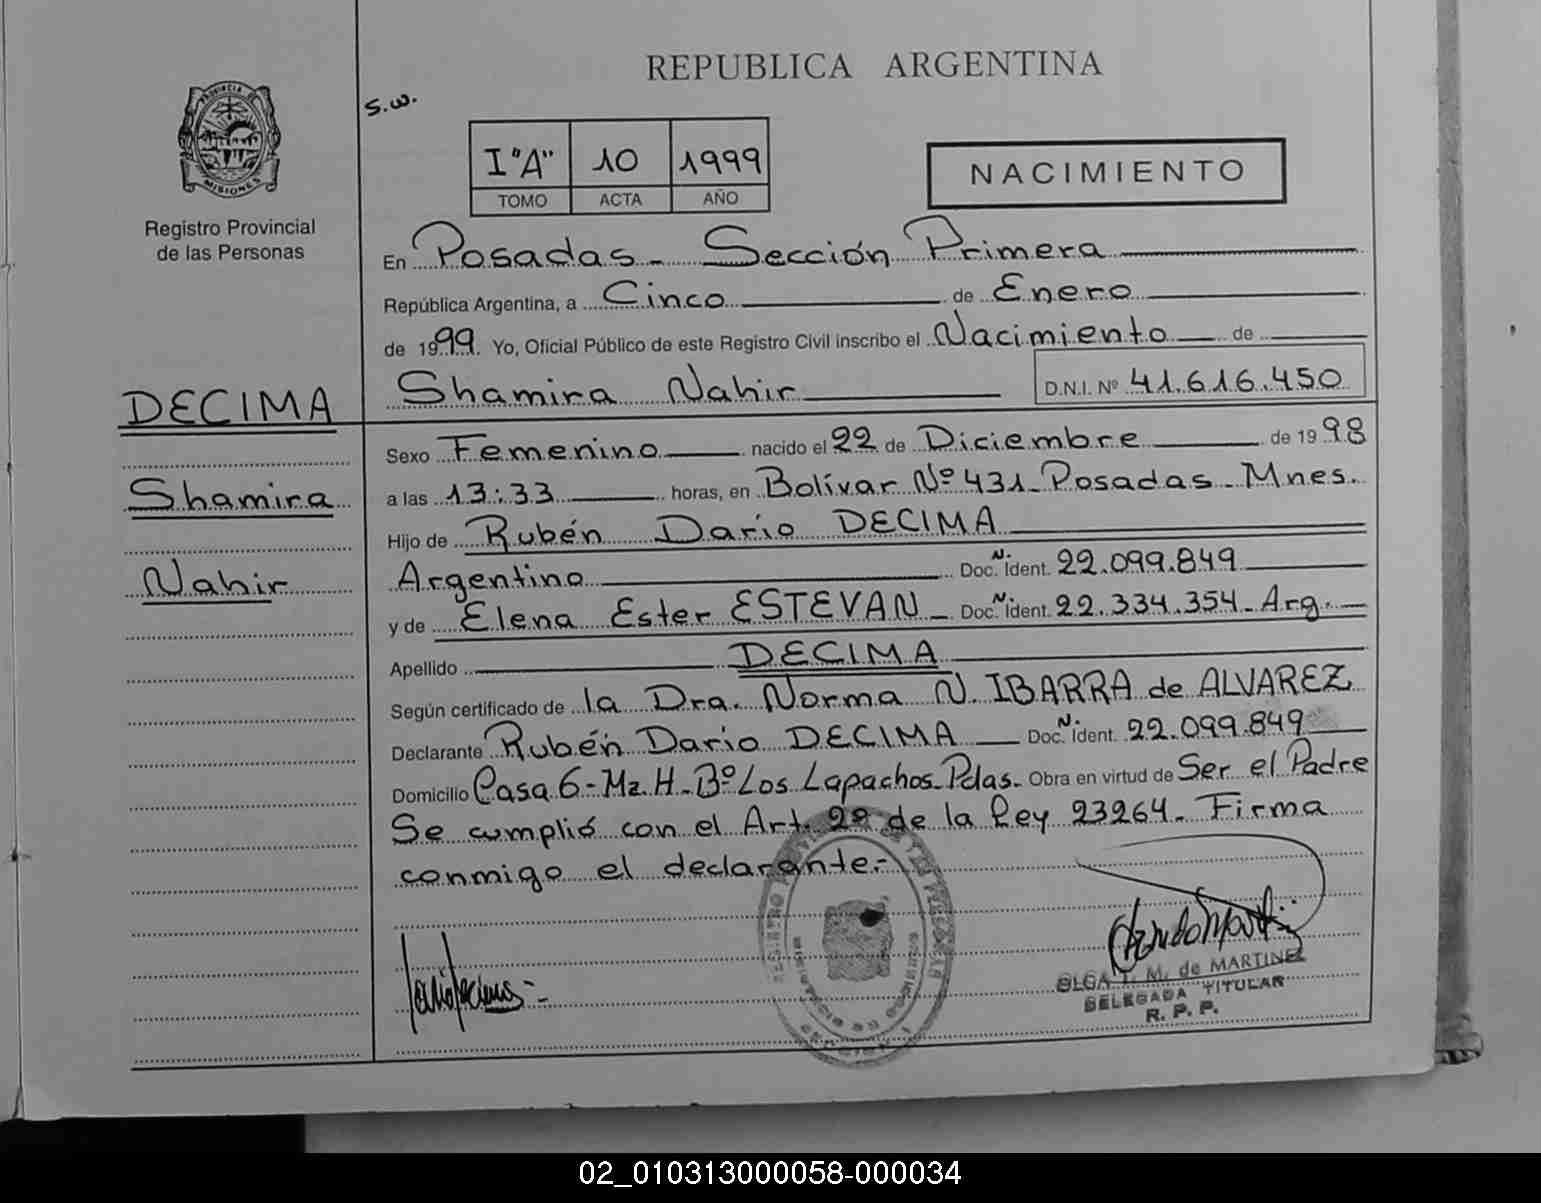 REPUBLICA ARGENTINA
S.W.
PROVINCIA DE
MISIONES
Registro Provincial
de las Personas
I "A" 10 1999
TOMO ACTA AÑO
NACIMIENTO
En Posadas - Sección Primera
República Argentina, a Cinco de Enero
de 1999. Yo, Oficial Público de este Registro Civil inscribo el Nacimiento de
Shamira Nahir D.N.I. Nº 41.616.450
DECIMA
Shamira
Nahir
Sexo Femenino nacido el 22 de Diciembre de 1998
a las 13:33 horas, en Bolívar Nº 431 - Posadas - Mnes.
Hijo de Rubén Darío DECIMA
Argentino Doc. N. Ident. 22.099.849
y de Elena Ester ESTEVAN - Doc. N. Ident. 22.334.354 - Arg.
Apellido DECIMA
Según certificado de la Dra. Norma N. IBARRA de ALVAREZ
Declarante Rubén Dario DECIMA Doc. N. Ident. 22.099.849
Domicilio Casa 6 - Mz. H - Bº Los Lapachos - Pdas. Obra en virtud de Ser el Padre
Se cumplió con el Art. 2º de la Ley 23264 - Firma
conmigo el declarante.-
OLGA M. de MARTINEZ
DELEGADA TITULAR
R. P. P.
02_010313000058-000034